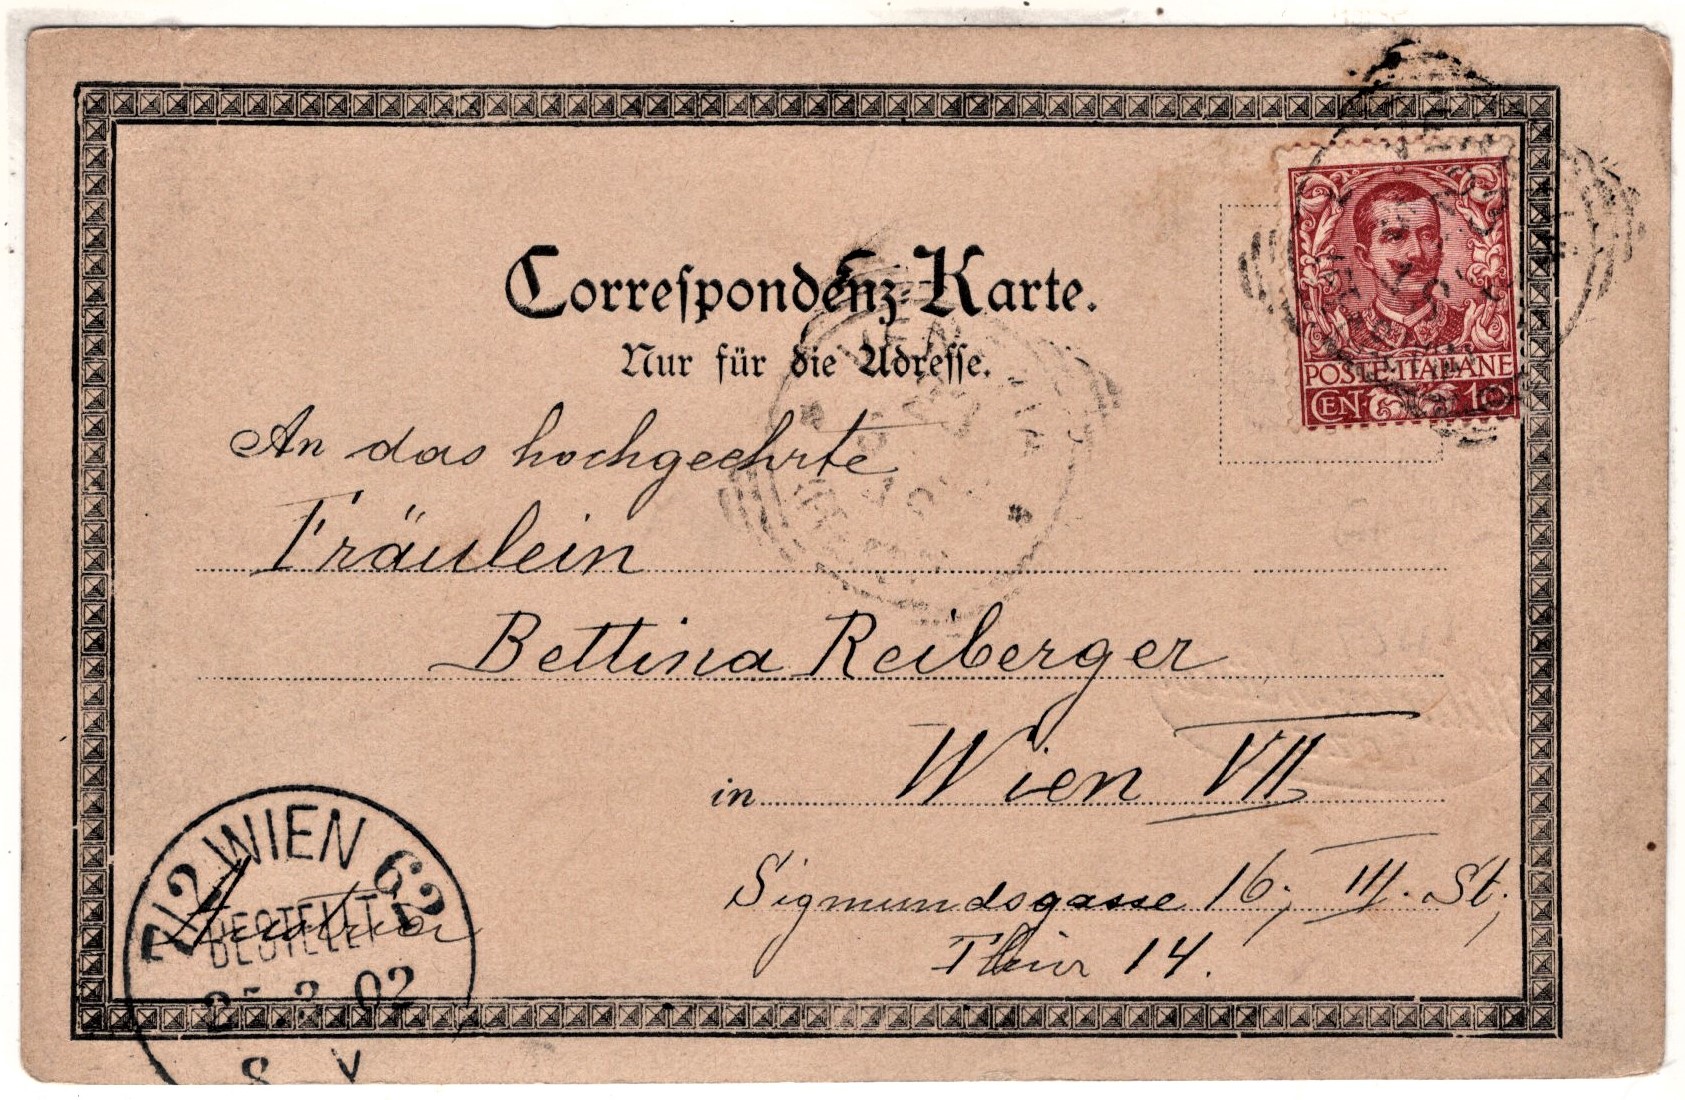 Correspondenz-Karte.
Nur für die Adresse.
POSTE ITALIANE
CEN. 10
An das hochgeehrte
Fräulein
Bettina Reiberger
in Wien VII
Sigmundsgasse 16, III. St,
Thür 14.
Austria
7/2 WIEN 62
BESTELLT
3 02
8 V